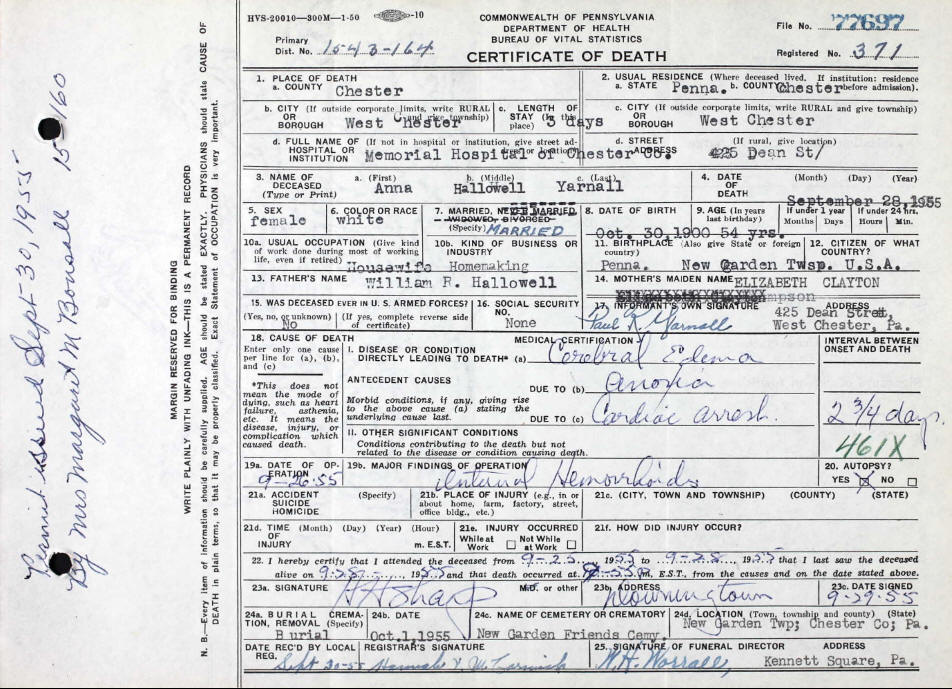 HVS-20010—300M—1-50 -10
COMMONWEALTH OF PENNSYLVANIA
DEPARTMENT OF HEALTH
BUREAU OF VITAL STATISTICS
CERTIFICATE OF DEATH
File No. 77697
Primary
Dist. No. 1543-164
Registered No. 371
1. PLACE OF DEATH
a. COUNTY Chester
2. USUAL RESIDENCE (Where deceased lived. If institution: residence before admission).
a. STATE Penna. b. COUNTY Chester
b. CITY (If outside corporate limits, write RURAL and give township)
OR BOROUGH West Chester
c. LENGTH OF STAY (in this place) 3 days
c. CITY (If outside corporate limits, write RURAL and give township)
OR BOROUGH West Chester
d. FULL NAME OF (If not in hospital or institution, give street address or location)
HOSPITAL OR INSTITUTION Memorial Hospital of Chester Co.
d. STREET ADDRESS (If rural, give location)
425 Dean St/
3. NAME OF DECEASED (Type or Print)
a. (First) Anna b. (Middle) Hallowell c. (Last) Yarnall
4. DATE OF DEATH (Month) (Day) (Year)
September 28, 1955
5. SEX female
6. COLOR OR RACE white
7. MARRIED, NEVER MARRIED, WIDOWED, DIVORCED (Specify) MARRIED
8. DATE OF BIRTH Oct. 30, 1900
9. AGE (In years last birthday) 54 yrs.
If under 1 year Months Days
If under 24 hrs. Hours Min.
10a. USUAL OCCUPATION (Give kind of work done during most of working life, even if retired) Housewife
10b. KIND OF BUSINESS OR INDUSTRY Homemaking
11. BIRTHPLACE (Also give State or foreign country) Penna. New Garden Twsp.
12. CITIZEN OF WHAT COUNTRY? U.S.A.
13. FATHER'S NAME William R. Hallowell
14. MOTHER'S MAIDEN NAME ELIZABETH CLAYTON
15. WAS DECEASED EVER IN U. S. ARMED FORCES?
(Yes, no, or unknown) No (If yes, complete reverse side of certificate)
16. SOCIAL SECURITY NO. None
17. INFORMANT'S OWN SIGNATURE Paul R Yarnall
ADDRESS 425 Dean Street, West Chester, Pa.
18. CAUSE OF DEATH
Enter only one cause per line for (a), (b), and (c)
*This does not mean the mode of dying, such as heart failure, asthenia, etc. It means the disease, injury, or complication which caused death.
MEDICAL CERTIFICATION
INTERVAL BETWEEN ONSET AND DEATH
I. DISEASE OR CONDITION DIRECTLY LEADING TO DEATH* (a) Cerebral Edema
ANTECEDENT CAUSES
Morbid conditions, if any, giving rise to the above cause (a) stating the underlying cause last.
DUE TO (b) Anoxia
DUE TO (c) Cardiac arrest
2 3/4 days.
461X
II. OTHER SIGNIFICANT CONDITIONS
Conditions contributing to the death but not related to the disease or condition causing death.
19a. DATE OF OPERATION 9-26-55
19b. MAJOR FINDINGS OF OPERATION Internal Hemorrhoids
20. AUTOPSY? YES X NO
21a. ACCIDENT SUICIDE HOMICIDE (Specify)
21b. PLACE OF INJURY (e.g., in or about home, farm, factory, street, office bldg., etc.)
21c. (CITY, TOWN AND TOWNSHIP) (COUNTY) (STATE)
21d. TIME OF INJURY (Month) (Day) (Year) (Hour) m. E.S.T.
21e. INJURY OCCURRED While at Work Not While at Work
21f. HOW DID INJURY OCCUR?
22. I hereby certify that I attended the deceased from 9-25, 1955 to 9-28, 1955 that I last saw the deceased
alive on 9-28, 1955 and that death occurred at m., E.S.T., from the causes and on the date stated above.
23a. SIGNATURE H H Sharp M.D. or other
23b. ADDRESS Downingtown
23c. DATE SIGNED 9-29-55
24a. BURIAL, CREMATION, REMOVAL (Specify) Burial
24b. DATE Oct.1,1955
24c. NAME OF CEMETERY OR CREMATORY New Garden Friends Cemy.
24d. LOCATION (Town, township and county) (State)
New Garden Twp; Chester Co; Pa.
DATE REC'D BY LOCAL REG. Sept 30-55
REGISTRAR'S SIGNATURE Hannah Y. McCormick
25. SIGNATURE OF FUNERAL DIRECTOR W. H. Worrall,
ADDRESS Kennett Square, Pa.
MARGIN RESERVED FOR BINDING
WRITE PLAINLY WITH UNFADING INK—THIS IS A PERMANENT RECORD
N. B.—Every item of information should be carefully supplied. AGE should be stated EXACTLY. PHYSICIANS should state CAUSE OF
DEATH in plain terms, so that it may be properly classified. Exact Statement of OCCUPATION is very important.
Permit issued Sept-30, 1955
By Mrs Margaret M Bonsall